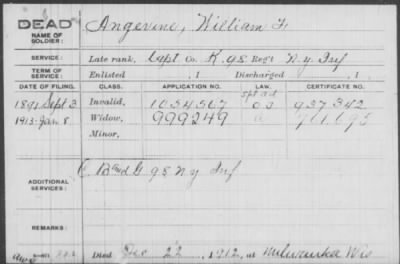 DEAD
NAME OF SOLDIER: Angevine, William F.
SERVICE: Late rank, Capt Co. K. 95 Reg't N.Y. Inf
TERM OF SERVICE: Enlisted , 1 Discharged , 1
DATE OF FILING. CLASS. APPLICATION NO. LAW. CERTIFICATE NO.
1891 Sept 3 Invalid, 1054567 937342
1913-Jan 8. Widow, 999249
Minor,
ADDITIONAL SERVICES: C. B and G 95 N Y Inf
REMARKS:
Died Dec 22, 1912, at Milwaukee Wis